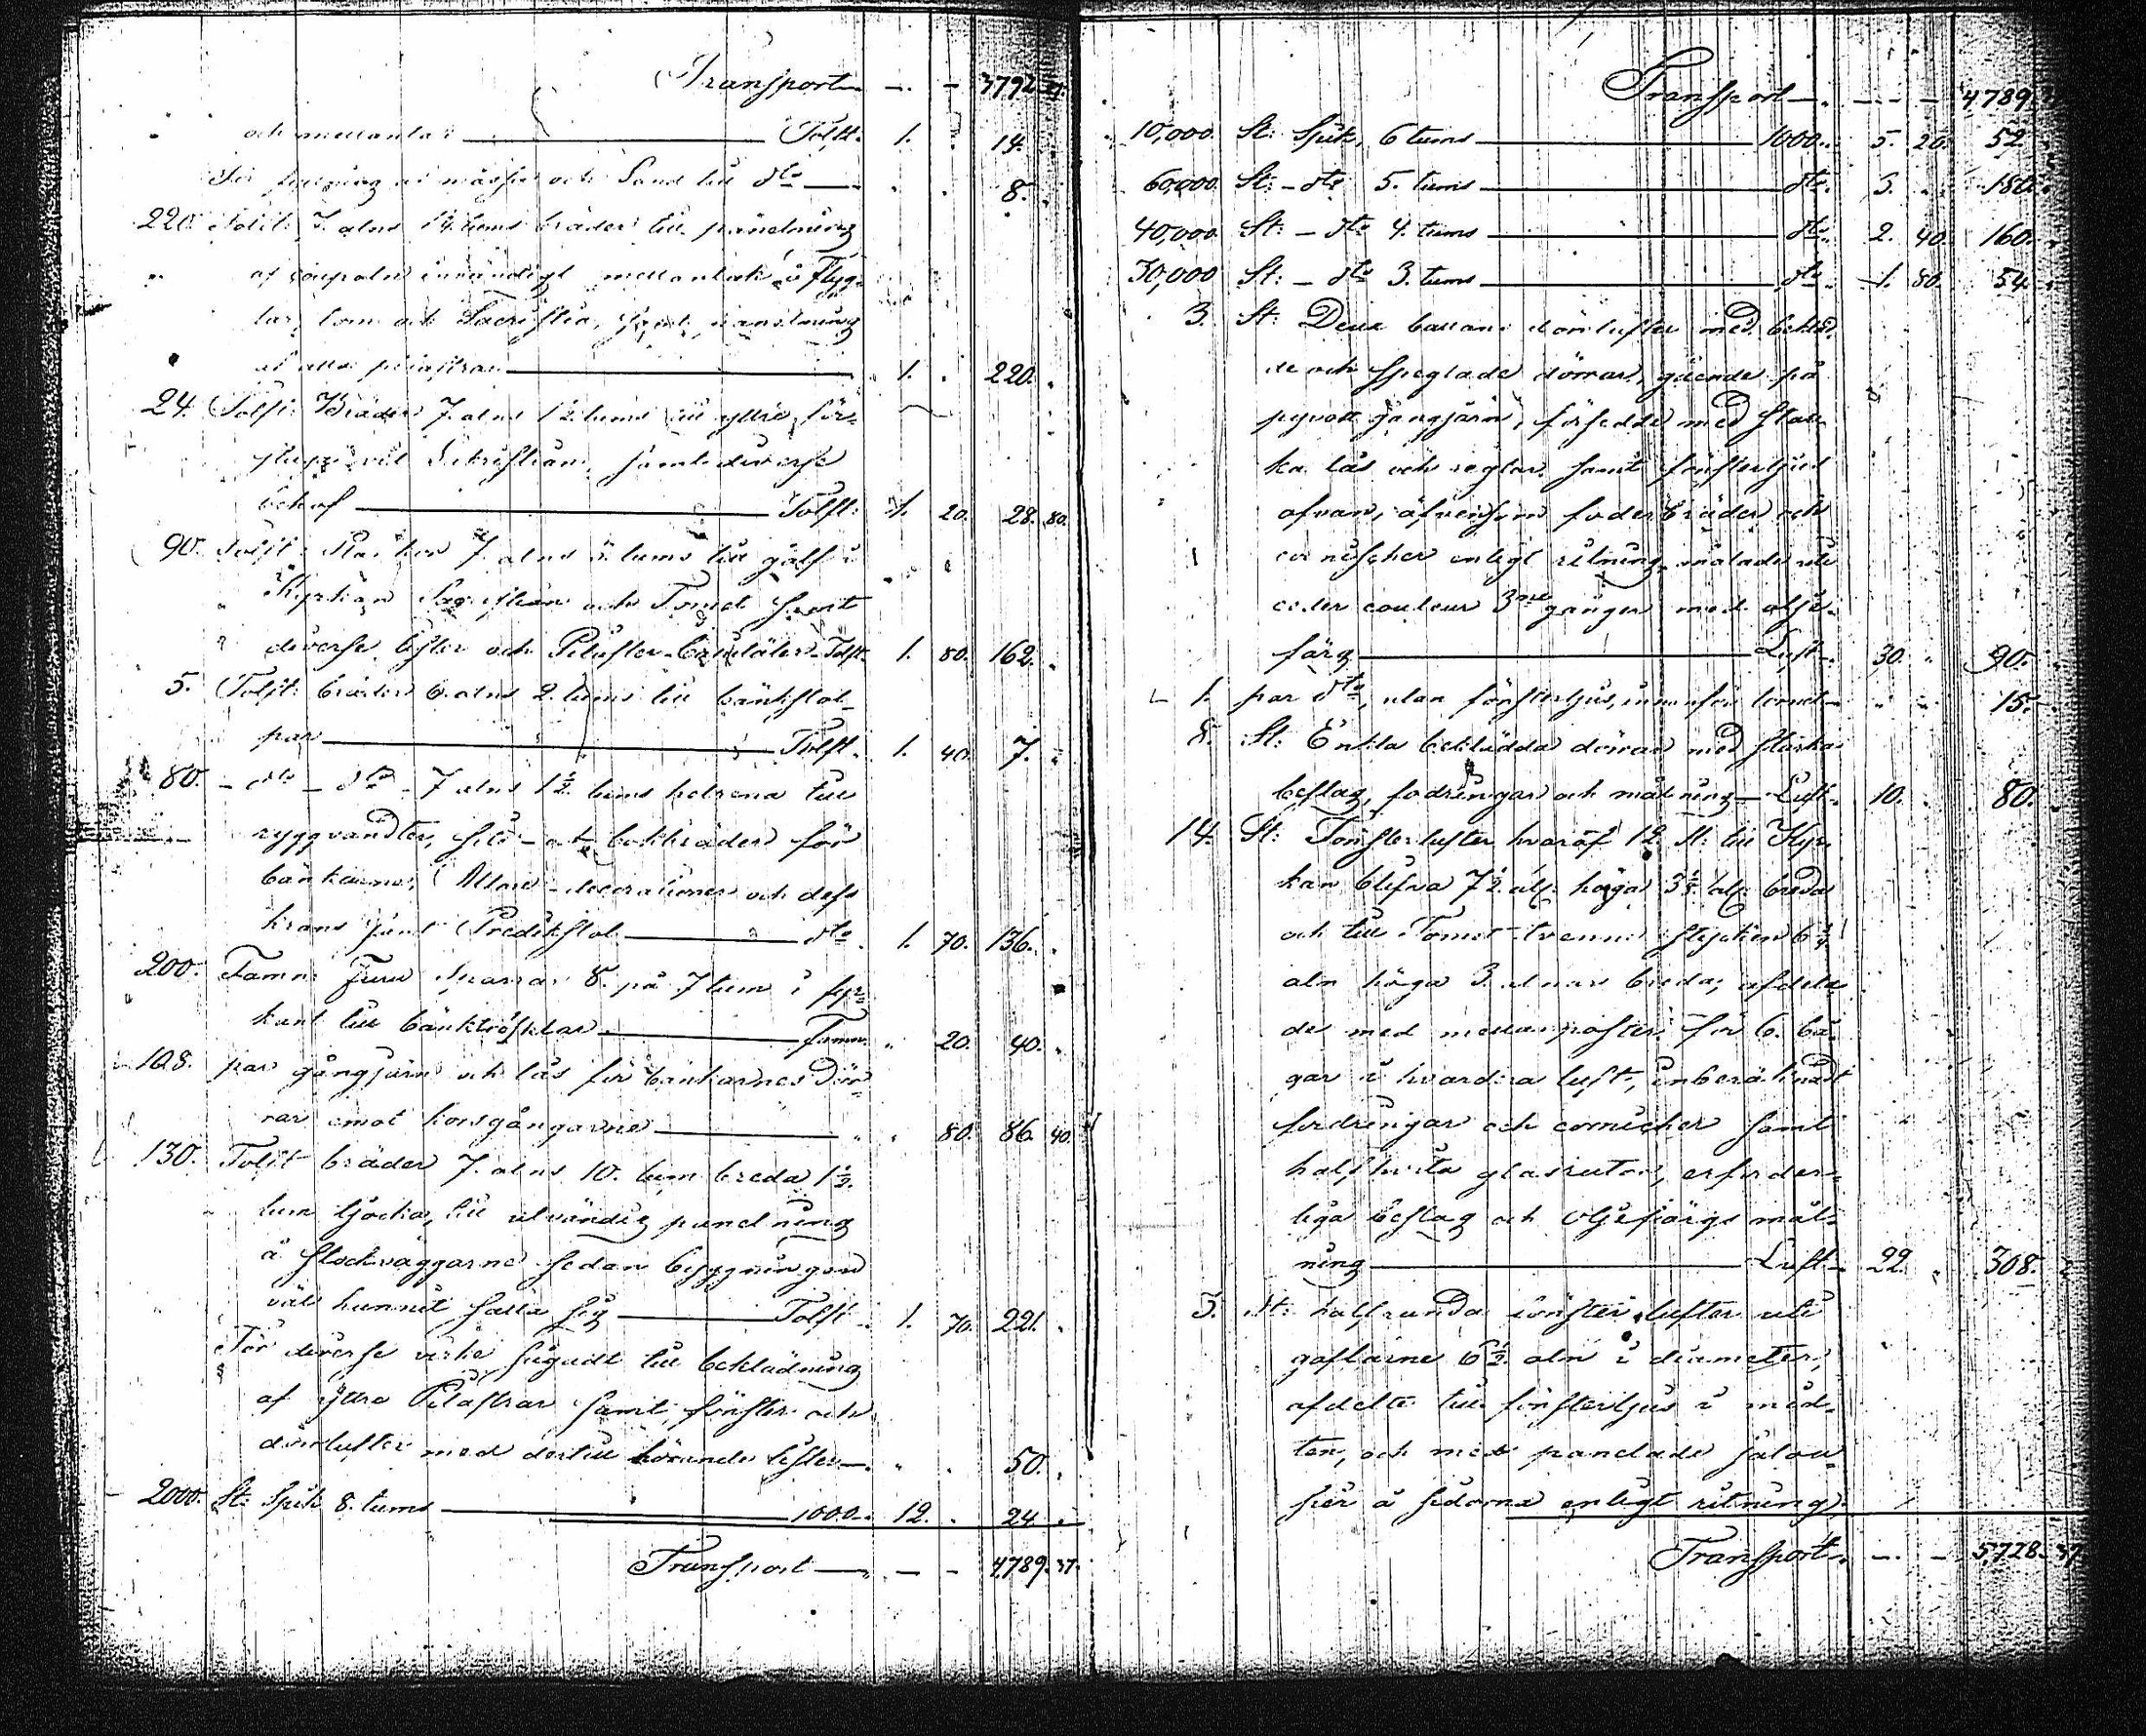 Transport — — 3792. 37.
och mellantak — Tolft. 1. 14.
För och Sand till dto — 8.
220. Tolft: 7. alns 1½ tums bräder till panelning
af invändigt mellantak i Flyg-
lar, torn och Sacristia, samt panelning
af alla pilastrar — 1. 220.
24. Tolft: Bräder 7. alns 1½ tums till yttre för-
vid Sakristian, samt diverse
behof — Tolft: 1. 20. 28. 80.
90. Tolft: Plankor 7. alns 3. tums till golf i
Kyrkan Sacristian och Tornet samt
diverse lister och Pilaster Tolft. 1. 80. 162.
5. Tolft: bräder 6. alns 2. tums till bänkstol-
par — Tolft. 1. 40. 7.
80. — dto — dto — 7 alns 1½ tums helrena till
ryggvandter, sits- och bokbräder för
bänkarne, Altare-decorationer och dess
krans samt Predikstol — dto 1. 70. 136.
200. Famn: Furu sparrar 8. på 7 tum i fyr-
kant till bänktrösklar — Famn. 20. 40.
108. par gångjärn och lås för bänkarnes dör-
rar emot korsgångarne — 80. 86. 40.
130. Tolft bräder 7. alns 10. tum breda 1½.
tum tjocka, till utvändig panelning
å stockväggarne sedan byggningen
väl hunnit sätta sig — Tolft 1. 70. 221.
För diverse virke sågadt till beklädning
af yttre Pilastrar samt fönster och
dörrlufter med dertill hörande lister — 50.
2000. St: Spik 8. tums — 1000. 12. 24.
Transport — — 4,789. 37.
Transport — — 4789.
10,000. St: Spik, 6 tums — 1000. 5. 20. 52.
60,000. St: — dto 5. tums — dto. 3. 180.
40,000. St: — dto 4. tums — dto. 2. 40. 160.
30,000 St: — dto 3. tums — dto. 1. 80. 54.
3. St: dörrlufter med bekläd-
de och speglade dörrar, gående på
gångjärn, försedde med star-
ka lås och reglar. samt fönsterljus
ofvan, äfvensom foderbräder och
cornischer enligt ritning, målade uti
couleur 3ne gånger med olje-
färg — Luft. 30. 90.
1. par dto, utan fönsterljus, innanför tornet — 15.
8. St: Enkla beklädda dörrar med starka
beslag, fodringar och målning — Luft. 10. 80.
14. St: Fönsterlufter hvaraf 12. St: till Kyr-
kan blifva 7½ aln höga 3½ aln breda
och till Tornet tvenne stycken 6¾
aln höga 3. alnar breda; afdela-
de med mellanposter för 6. bå-
gar i hvardera luft, inberäknadt
fodringar och cornicher samt
halfhvita glasrutor, erforder-
liga beslag och Oljefärgs mål-
ning — Luft. 22. 308.
3. St: halfrunda fönster lufter uti
gaflarne 6½ aln i diameter;
afdelte till fönsterljus i mid-
ten, och med panelade jalou-
sier å sidorna enligt ritning
Transport — — 5,728. 37